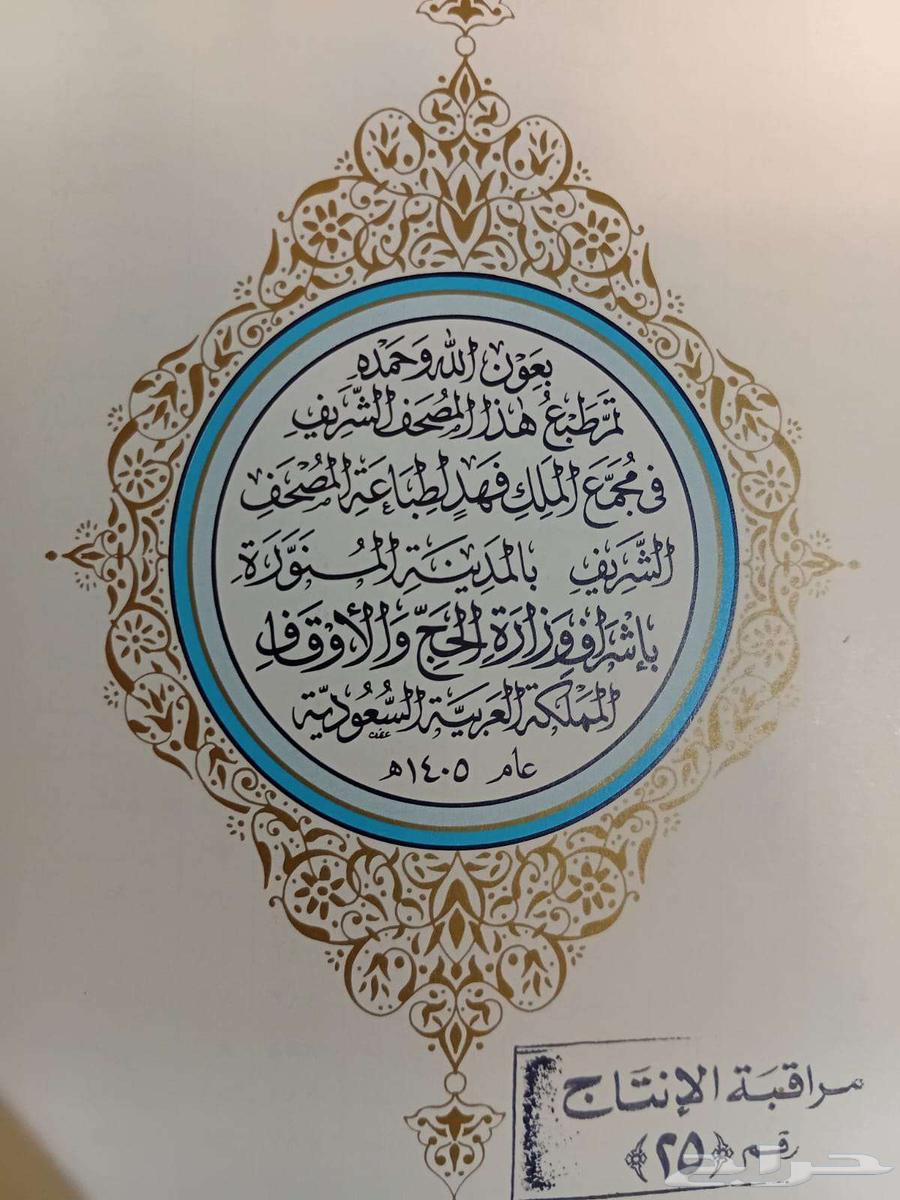 بِعَوْنِ اللهِ وَحَمْدِهِ
تَمَّ طَبْعُ هٰذَا الْمُصْحَفِ الشَّرِيفِ
فِي مُجَمَّعِ الْمَلِكِ فَهْدٍ لِطِبَاعَةِ الْمُصْحَفِ
الشَّرِيفِ بِالْمَدِينَةِ الْمُنَوَّرَةِ
بِإِشْرَافِ وِزَارَةِ الْحَجِّ وَالْأَوْقَافِ
الْمَمْلَكَةِ الْعَرَبِيَّةِ السُّعُودِيَّةِ
عام ١٤٠٥ھ
مراقبة الإنتاج
رقم ﴿٢٥﴾
حراج